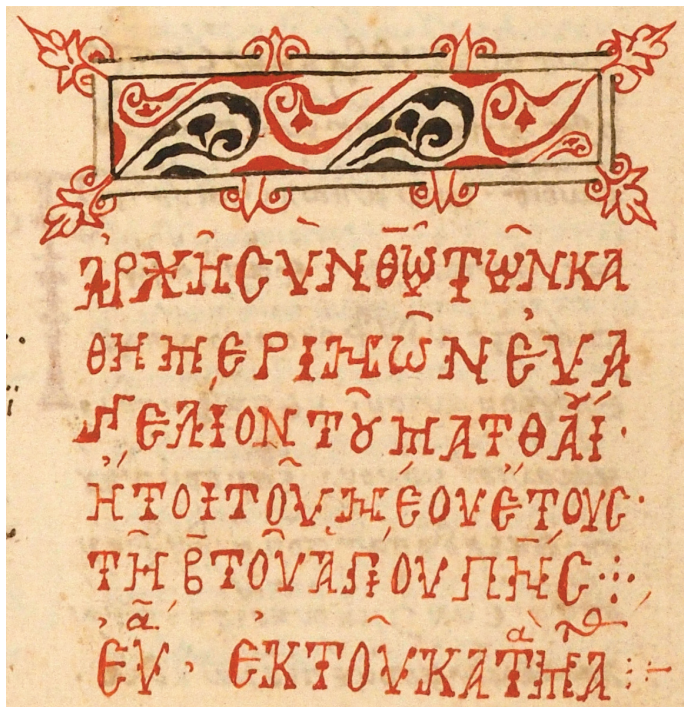 ἀρχῆ σὺν θ̅ω̅ τῶν κα
θημερινῶν ἐυα
γγέλιον τοῦ ματθαΐ·
ἤτοι τοῦ νέου ἔτους·
τῆ β̅ τοῦ ἁγίου πν̅ς
ἐκ τοῦ κατ μα